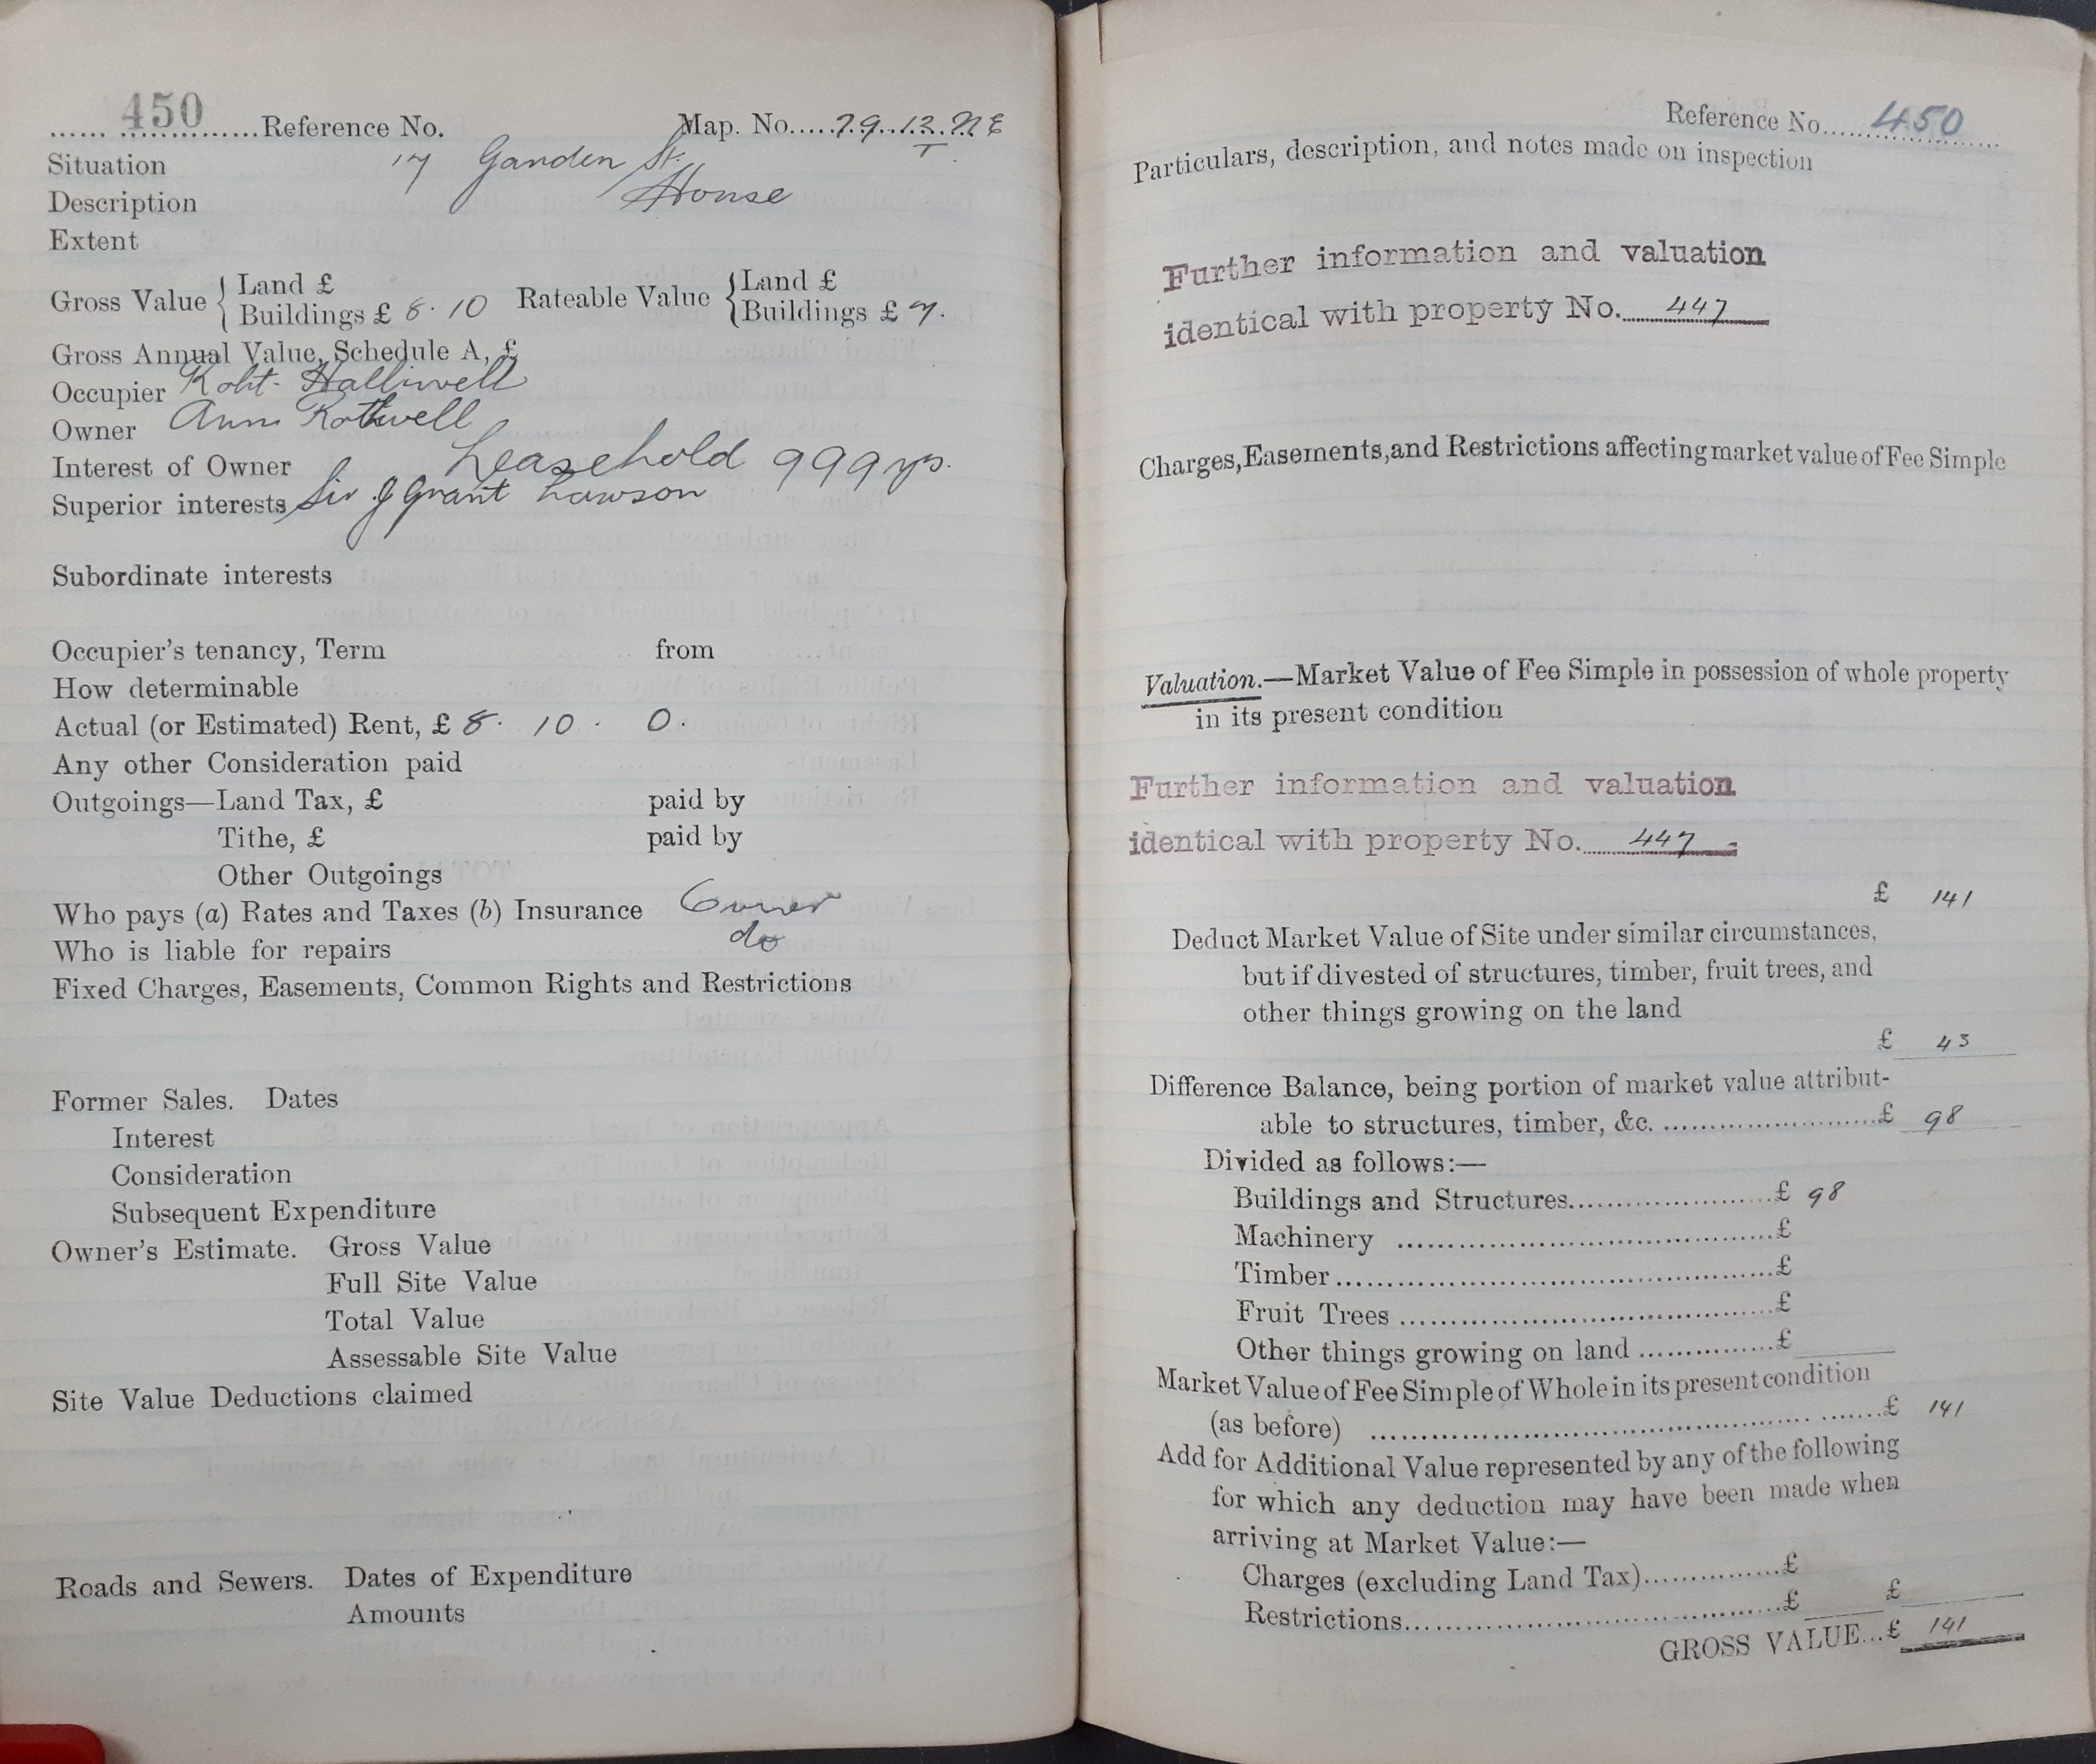 450 Reference No. Map. No. 79.12.NE
T
Situation 17 Garden St.
Description House
Extent
Gross Value { Land £ Rateable Value { Land £
Buildings £ 8.10 Buildings £ 7.
Gross Annual Value, Schedule A, £
Occupier Robt. Halliwell
Owner Ann Rothwell
Interest of Owner Leasehold 999 yrs.
Superior interests Sir J Grant Lawson
Subordinate interests
Occupier's tenancy, Term from
How determinable
Actual (or Estimated) Rent, £ 8. 10. 0.
Any other Consideration paid
Outgoings—Land Tax, £ paid by
Tithe, £ paid by
Other Outgoings
Who pays (a) Rates and Taxes (b) Insurance Owner
Who is liable for repairs do
Fixed Charges, Easements, Common Rights and Restrictions
Former Sales. Dates
Interest
Consideration
Subsequent Expenditure
Owner's Estimate. Gross Value
Full Site Value
Total Value
Assessable Site Value
Site Value Deductions claimed
Roads and Sewers. Dates of Expenditure
Amounts
Reference No. 450
Particulars, description, and notes made on inspection
Further information and valuation
identical with property No. 447
Charges, Easements, and Restrictions affecting market value of Fee Simple
Valuation.—Market Value of Fee Simple in possession of whole property
in its present condition
Further information and valuation
identical with property No. 447
£ 141
Deduct Market Value of Site under similar circumstances,
but if divested of structures, timber, fruit trees, and
other things growing on the land
£ 43
Difference Balance, being portion of market value attribut-
able to structures, timber, &c. £ 98
Divided as follows:—
Buildings and Structures £ 98
Machinery £
Timber £
Fruit Trees £
Other things growing on land £
Market Value of Fee Simple of Whole in its present condition
(as before) £ 141
Add for Additional Value represented by any of the following
for which any deduction may have been made when
arriving at Market Value:—
Charges (excluding Land Tax) £
Restrictions £ £
GROSS VALUE...£ 141